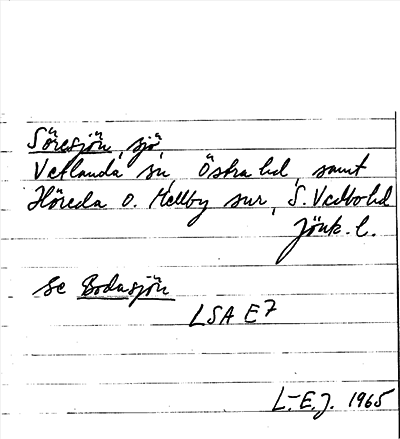 Söresjön, sjö,
Vetlanda sn, Östra hd, samt
Höreda o. Mellby snr, S. Vedbo hd
Jönk. l.
se Bodasjön
LSA E7
L-E.J. 1965